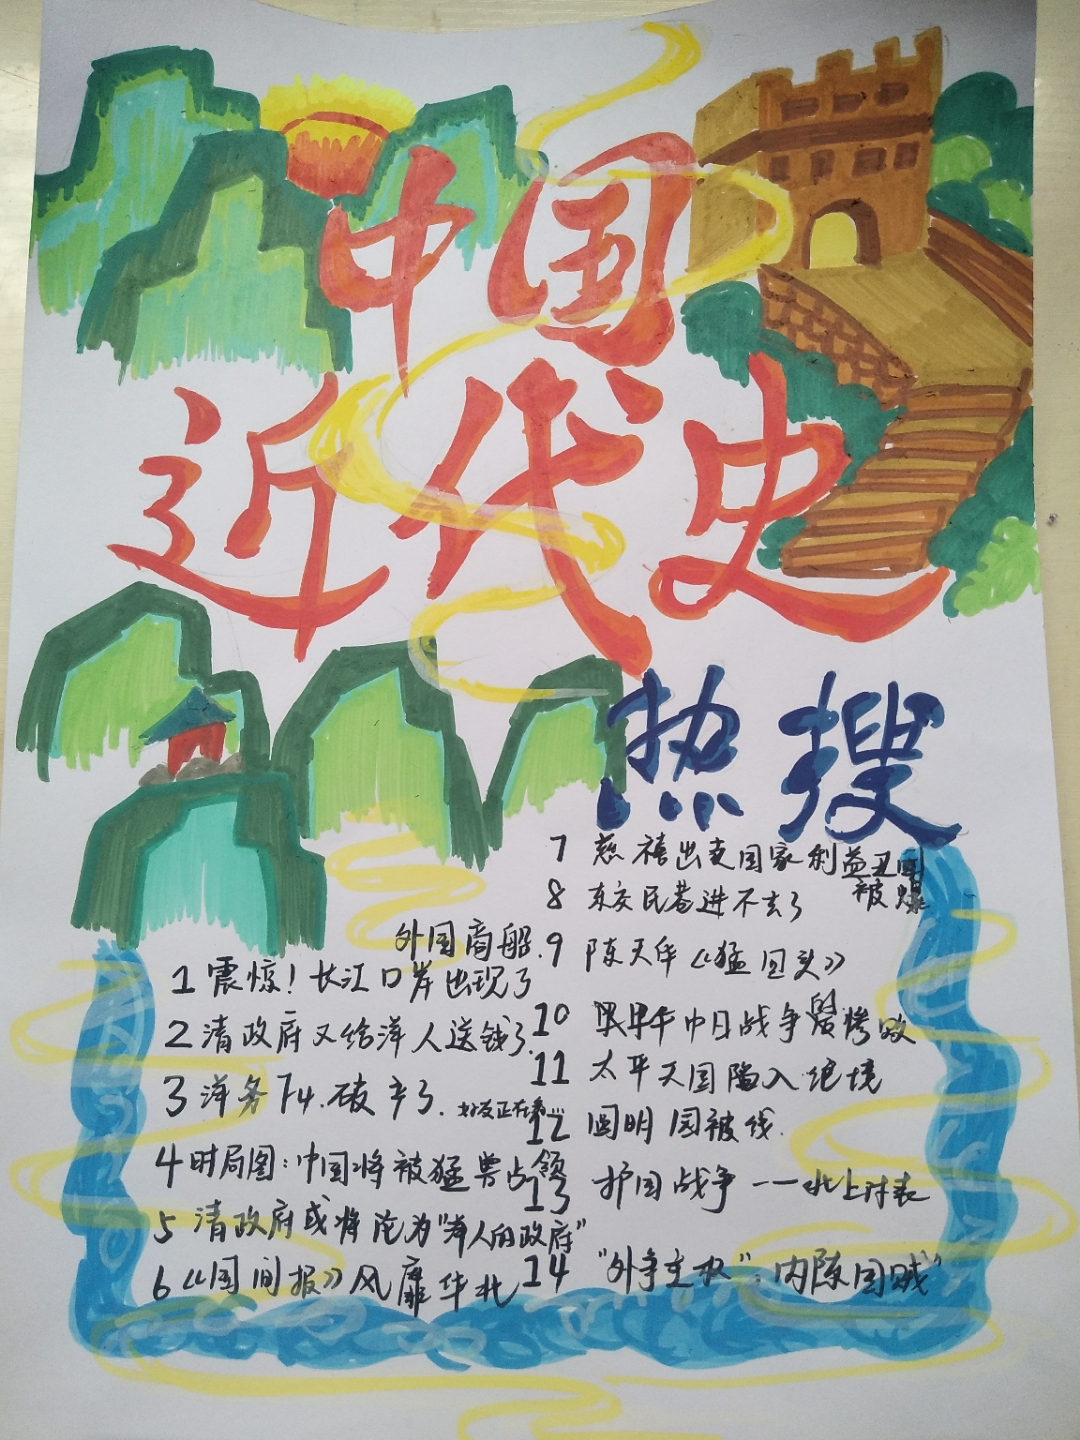 中国
近代史
热搜
外国商船
1 震惊!长江口岸出现了
2 清政府又给洋人送钱了.
3 洋务 破产了.
4 时局图:中国将被猛兽占领
5 清政府或将沦为"洋人的政府"
6 《国闻报》风靡华北
7 慈禧出卖国家利益丑闻
被爆
8 东交民巷进不去了
9 陈天华《猛回头》
10 中日战争
11 太平天国陷入绝境
12 圆明园被烧.
13 护国战争——北上讨袁
14 "外争主权",内除国贼"